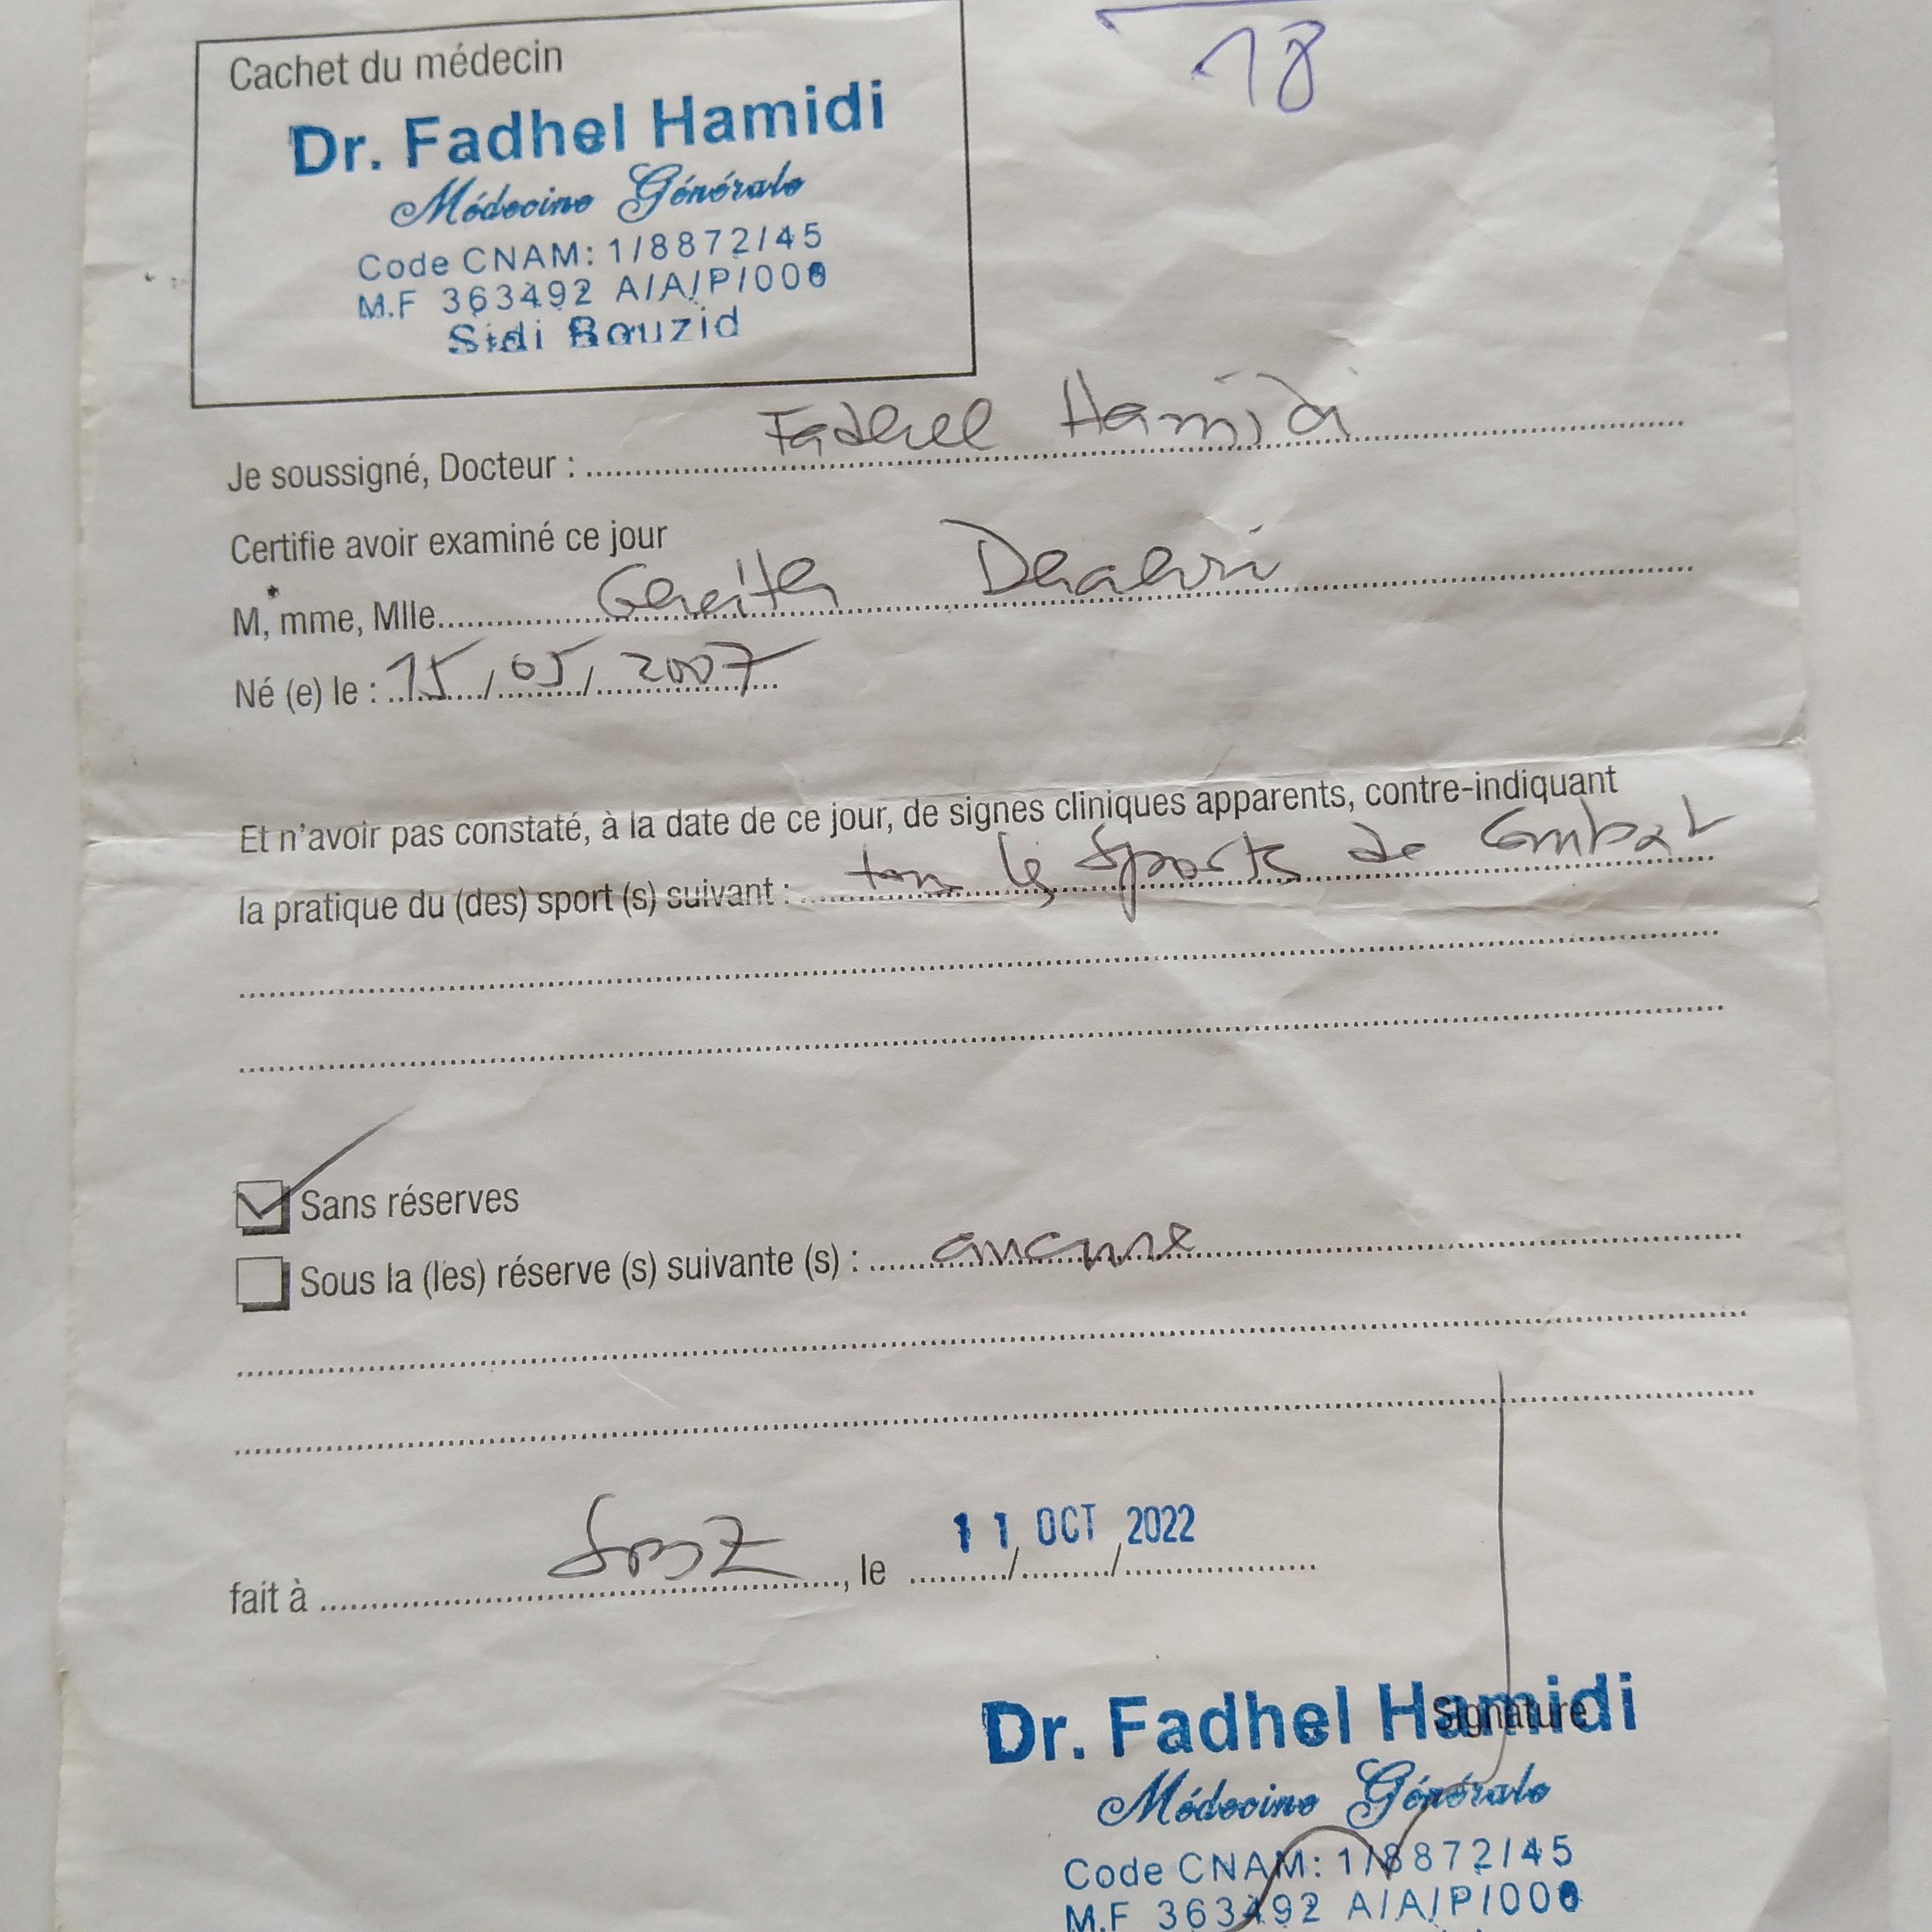 18
Cachet du médecin
Dr. Fadhel Hamidi
Médecine Générale
Code CNAM: 1/8872/45
M.F 363492 A/A/P/000
Sidi Bouzid
Je soussigné, Docteur : Fadhel Hamidi
Certifie avoir examiné ce jour
M, mme, Mlle
Né (e) le : 15/05/2007
Et n'avoir pas constaté, à la date de ce jour, de signes cliniques apparents, contre-indiquant
la pratique du (des) sport (s) suivant : tous les sports de combat
Sans réserves
Sous la (les) réserve (s) suivante (s) : aucune
fait à , le 11 OCT 2022
Signature
Dr. Fadhel Hamidi
Médecine Générale
Code CNAM: 1/8872/45
M.F 363492 A/A/P/000